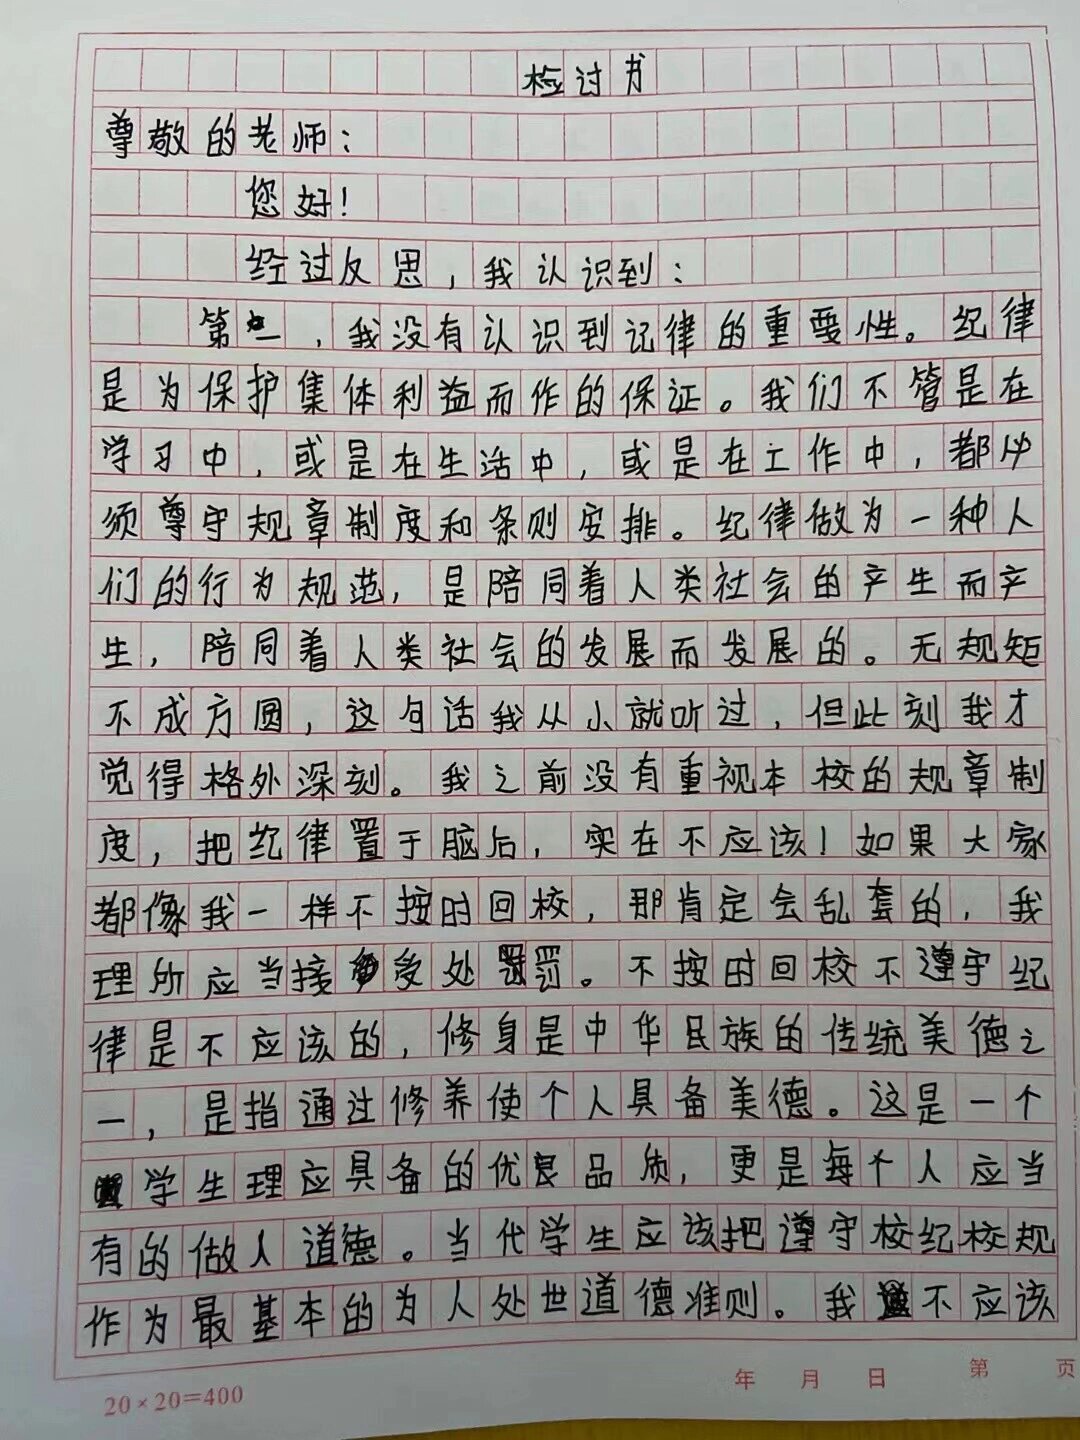 检讨书
尊敬的老师：
您好！
经过反思，我认识到：
第一，我没有认识到记律的重要性。纪律
是为保护集体利益而作的保证。我们不管是在
学习中，或是在生活中，或是在工作中，都必
须尊守规章制度和条则安排。纪律做为一种人
们的行为规范，是陪同着人类社会的产生而产
生，陪同着人类社会的发展而发展的。无规矩
不成方圆，这句话我从小就听过，但此刻我才
觉得格外深刻。我之前没有重视本校的规章制
度，把纪律置于脑后，实在不应该！如果大家
都像我一样不按时回校，那肯定会乱套的，我
理所应当接受处罚。不按时回校不遵守纪
律是不应该的，修身是中华民族的传统美德之
一，是指通过修养使个人具备美德。这是一个
学生理应具备的优良品质，更是每个人应当
有的做人道德。当代学生应该把遵守校纪校规
作为最基本的为人处世道德准则。我不应该
20×20=400
年 月 日 第 页